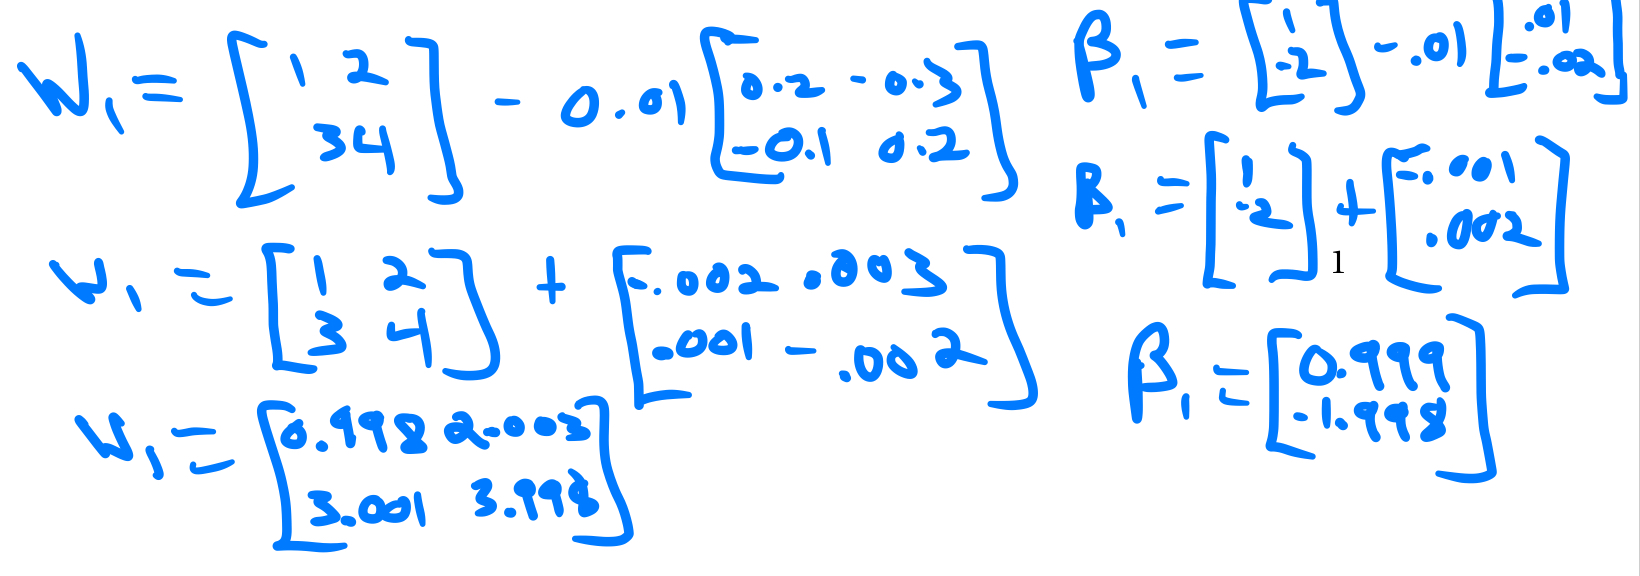 W₁ = [1 2; 3 4] - 0.01 [0.2 -0.3; -0.1 0.2]
W₁ = [1 2; 3 4] + [-.002 .003; .001 -.002]
W₁ = [0.998 2.003; 3.001 3.998]
β₁ = [1; -2] - .01 [.01; -.02]
β₁ = [1; -2] + [-.001; .002]
1
β₁ = [0.999; -1.998]